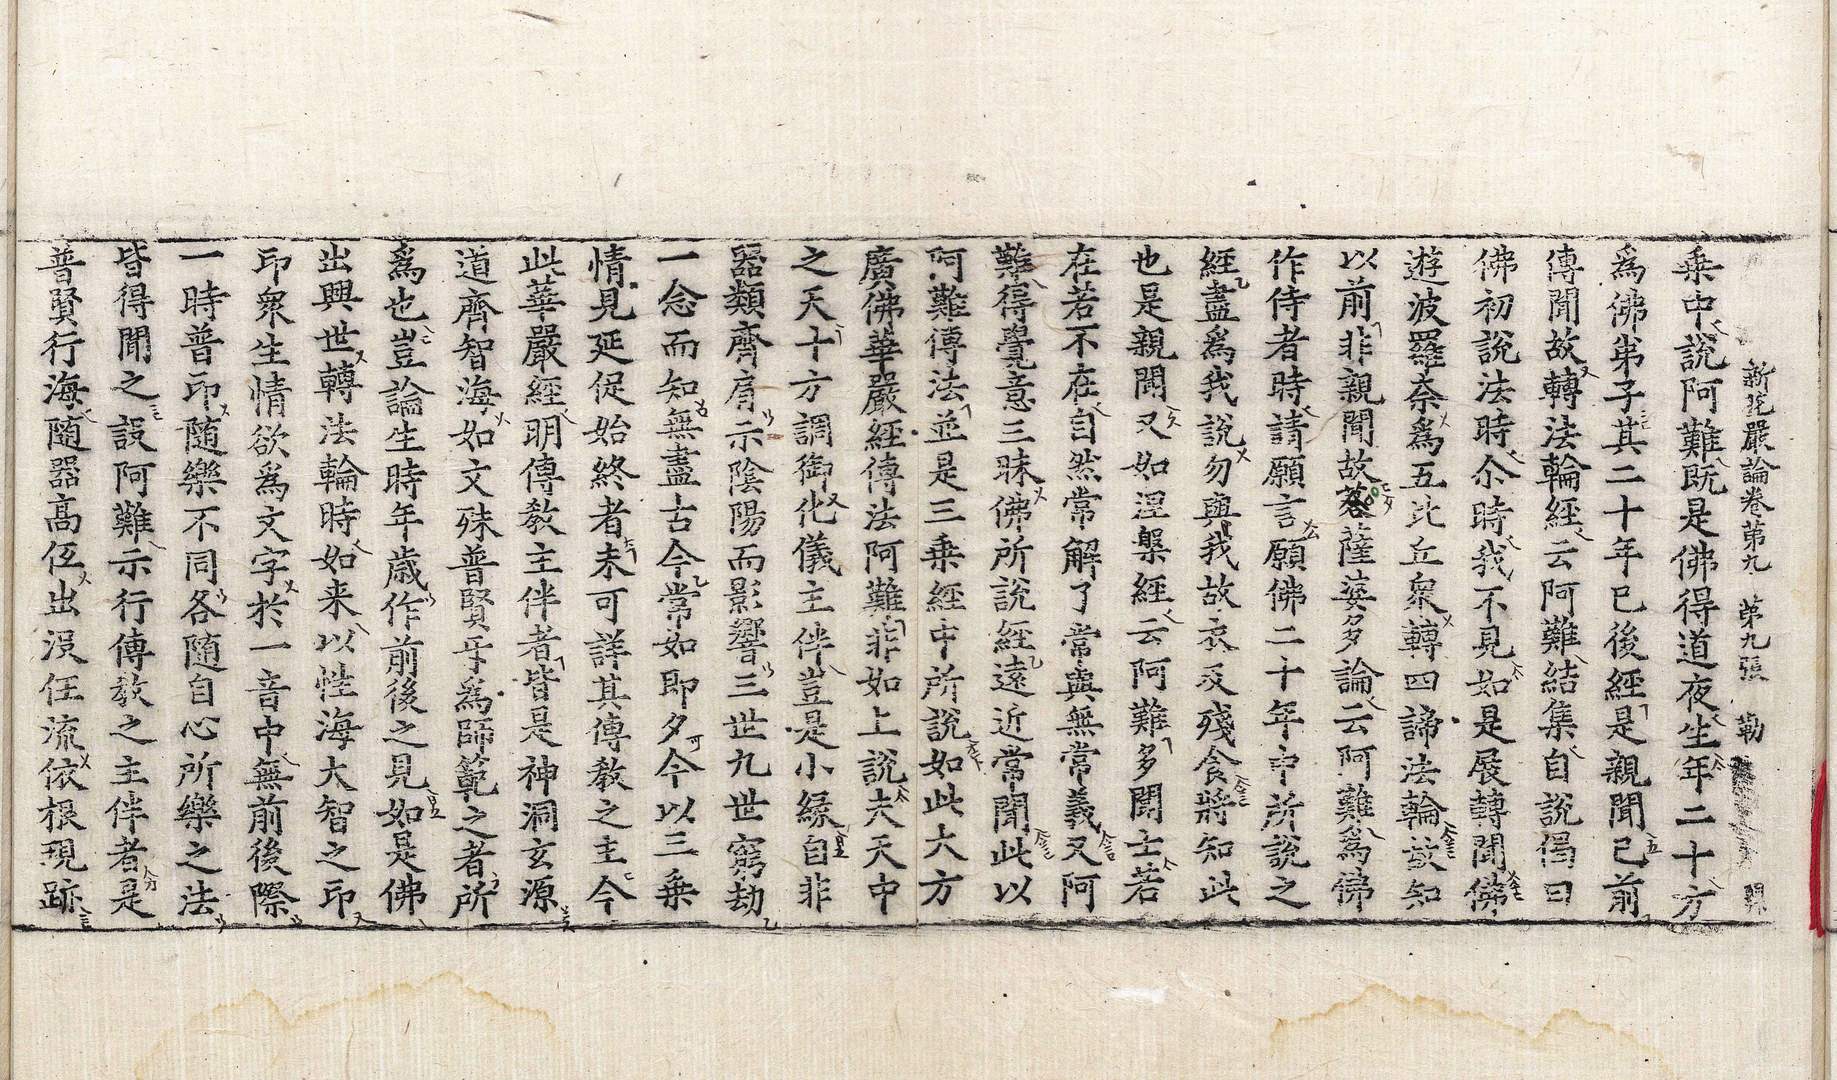 新花嚴論卷第九 第九張 勒
乗中說阿難既是佛得道夜生年二十方
爲佛弟子其二十年已後經是親聞已前
傳聞故轉法輪經云阿難結集自說偈曰
佛初說法時尒時我不見如是展轉聞佛
遊波羅奈爲五比丘衆轉四諦法輪故知
以前非親聞故菩薩婆多論云阿難爲佛
作侍者時請願言願佛二十年中所說之
經盡爲我說勿與我故衣及殘食將知此
也是親聞又如涅槃經云阿難多聞士若
在若不在自然常解了常與無常義又阿
難得覺意三昧佛所說經遠近常聞此以
阿難傳法並是三乗經中所說如此大方
廣佛華嚴經傳法阿難非如上說夫天中
之天十方調御化儀主伴豈是小緣自非
器類齊肩示陰陽而影響三世九世窮劫
一念而知無盡古今常如即夕今以三乗
情見延促始終者未可詳其傳教之主今
此華嚴經明傳教主伴者皆是神洞玄源
道齊智海如文殊普賢乎爲師範之者所
爲也豈論生時年歲作前後之見如是佛
出興世轉法輪時如来以性海大智之印
印衆生情欲爲文字於一音中無前後際
一時普印随樂不同各随自心所樂之法
皆得聞之設阿難示行傳教之主伴者是
普賢行海随器高低出没任流依根現跡